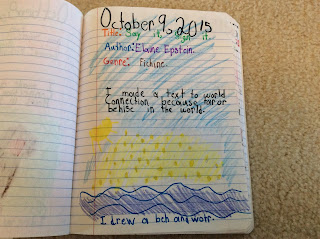 October 9, 2015
Title: Say it, sign it.
Author: Elaine Epstein.
Genre: Fichine.
I made a text to world
Connection because rar or
bchise in the world.
I drew a bch and watr.